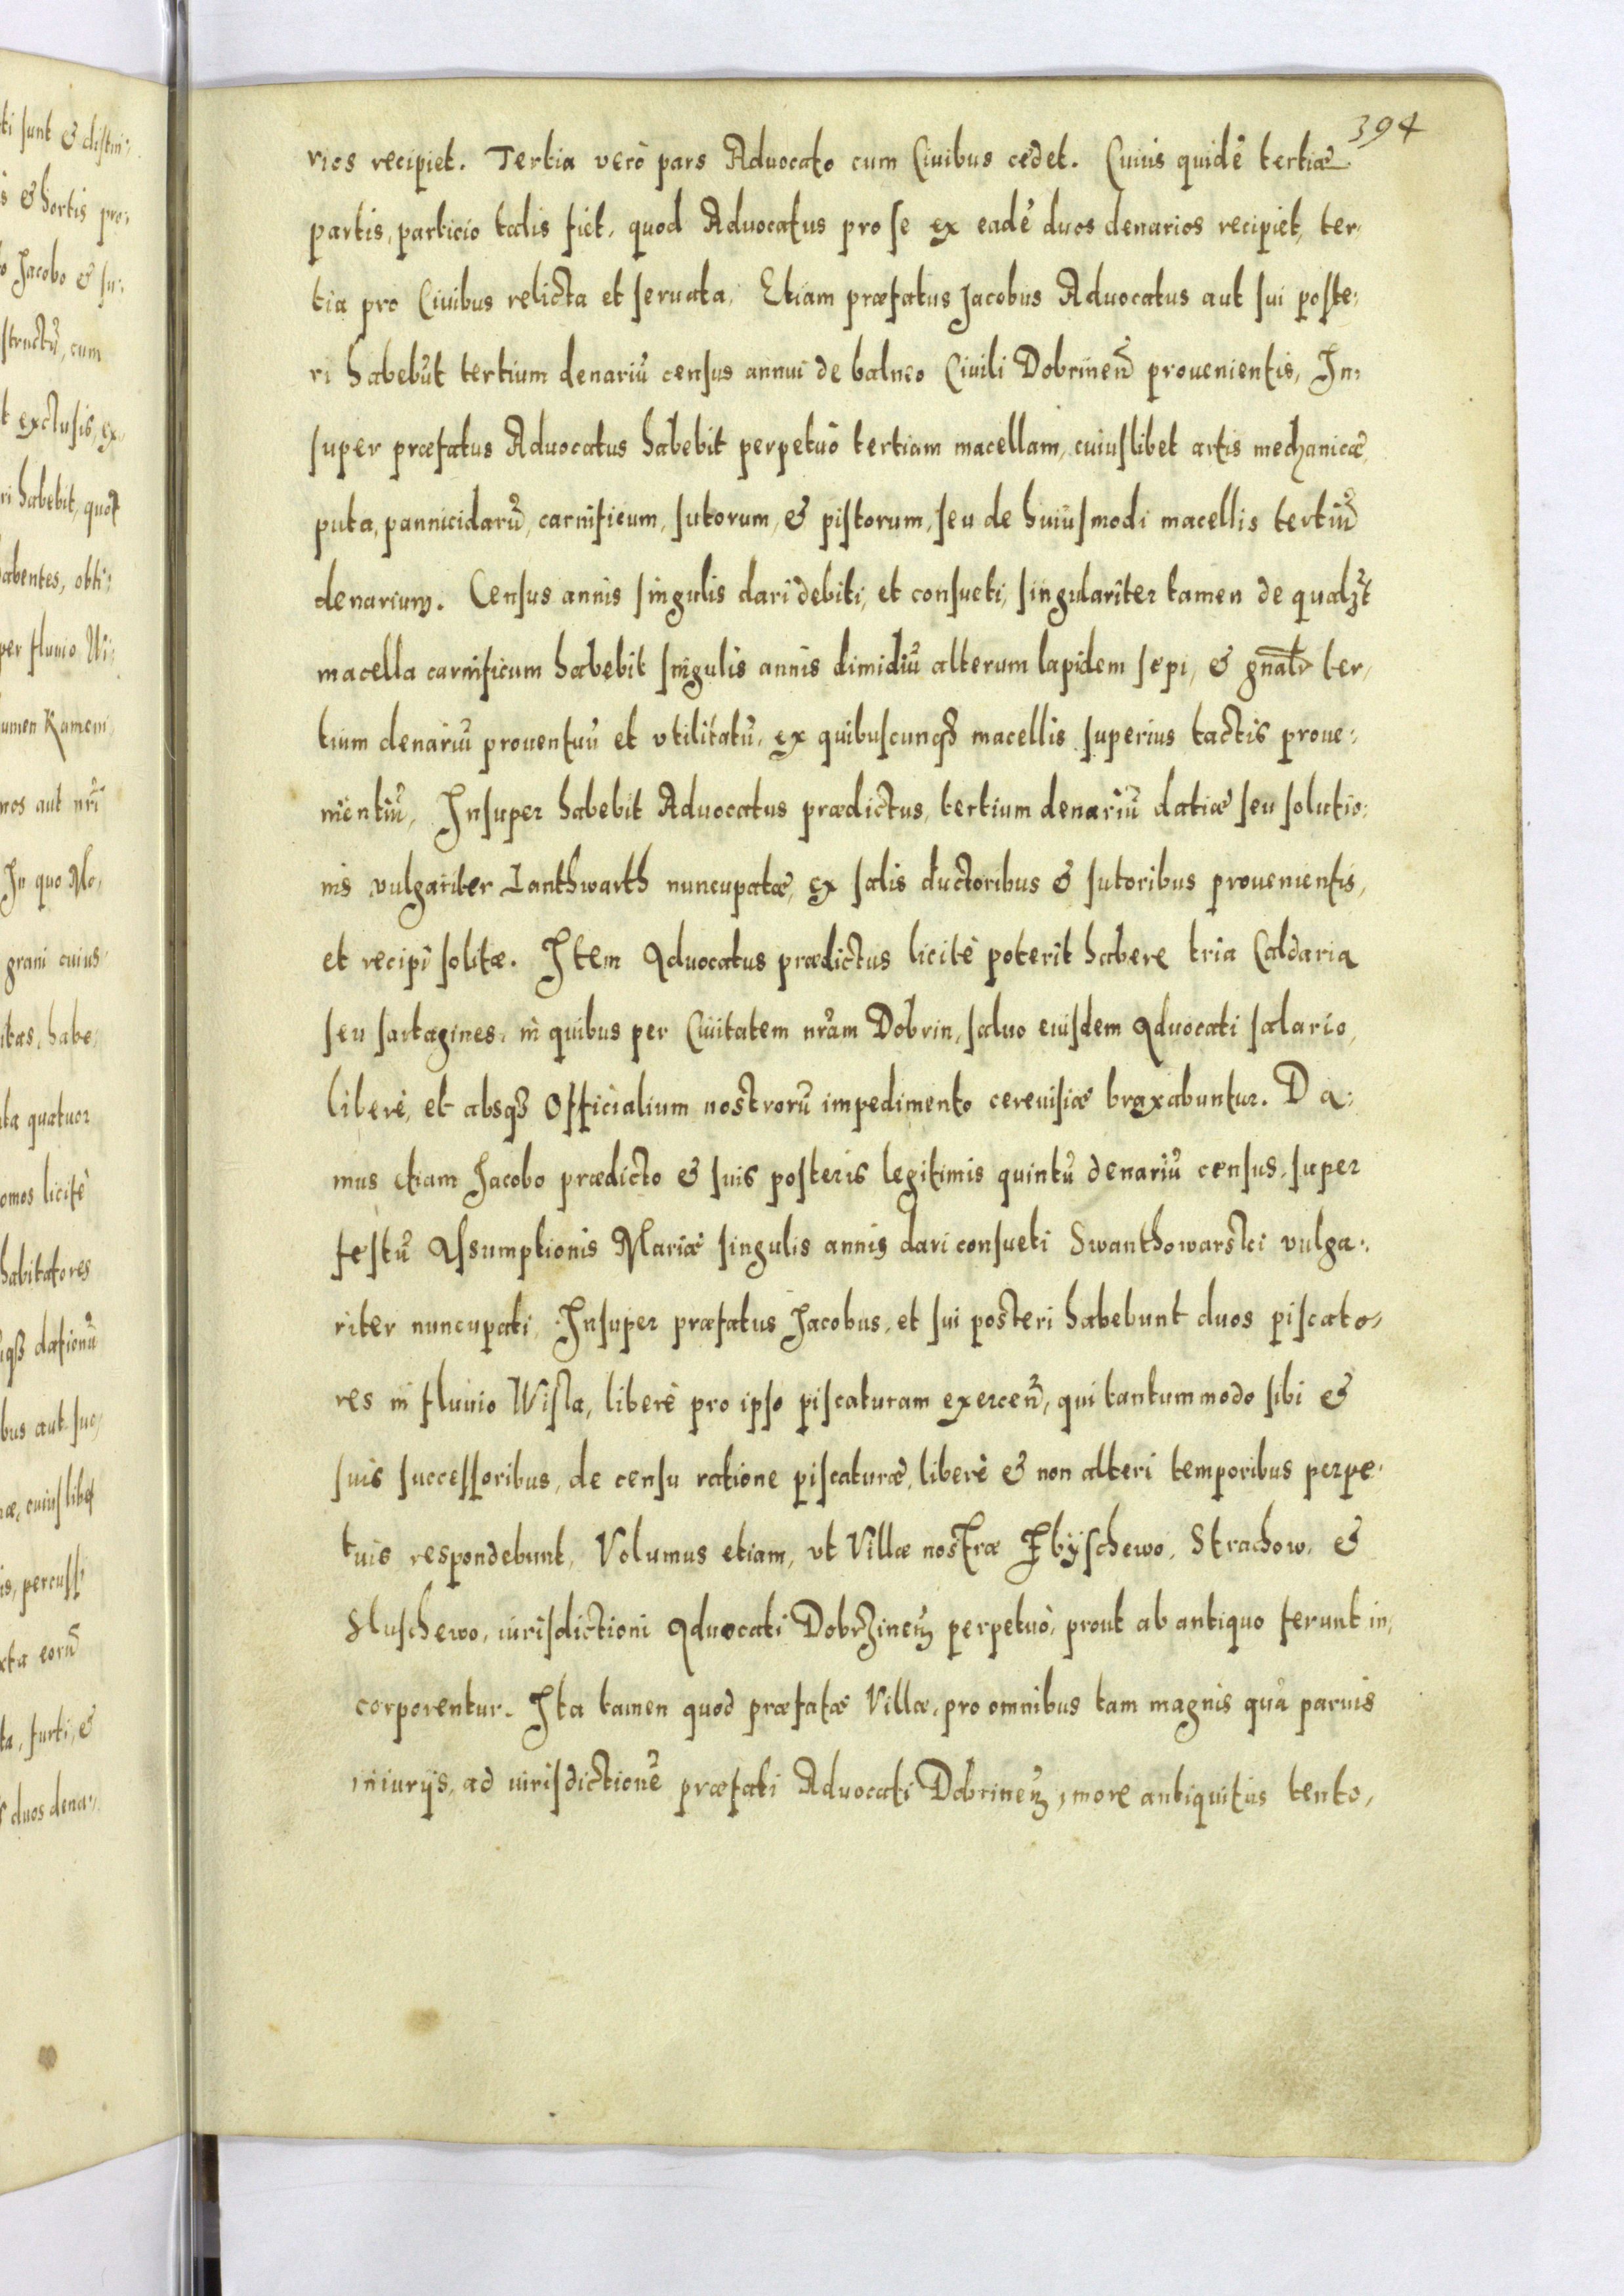 394
rios recipiet. Tertia verò pars Aduocato cum Ciuibus cedet. Cuius quidē tertiæ
partis, particio talis fiet, quod Aduocatus pro se ex eadē duos denarios recipiet, ter-
tia pro Ciuibus relicta et seruata, Etiam præfatus Jacobus Aduocatus aut sui poste:
ri habebūt tertium denariū census annui de balneo Ciuili Dobrineñ prouenientis, In:
super præfatus Aduocatus habebit perpetuò tertiam macellam, cuiuslibet artis mechanicæ,
puta, pannicidarū, carnificum, sutorum, & pistorum, seu de huiusmodi macellis tertiū
denarium. Census annis singulis dari debiti, et consueti, singulariter tamen de qualʒt
macella carnificum habebit singulis annis dimidiū alterum lapidem sepi, & gnalr ter,
tium denariū prouentuū et vtilitatū, ex quibuscunqʒ macellis superius tactis proue:
nientiū, Insuper habebit Aduocatus prædictus, tertium denariū datiæ seu solutio:
nis vulgariter Lanthwarth nuncupatæ, ex salis ductoribus & sutoribus prouenientis,
et recipi solitæ. Item Aduocatus prædictus licitè poterit habere tria Caldaria
seu sartagines, in quibus per Ciuitatem nr̃am Dobrin, saluo eiusdem Aduocati salario,
liberè, et absqʒ Officialium nostrorū impedimento cereuisiæ braxabuntur. Da:
mus etiam Jacobo prædicto & suis posteris legitimis quintū denariū census, super
festū Assumptionis Mariæ singulis annis dari consueti Swanthowarski vulga:
riter nuncupati, Insuper præfatus Jacobus, et sui posteri habebunt duos piscato-
res in fluuio Wisla, liberè pro ipso piscaturam exerceñ, qui tantummodo sibi &
suis successoribus, de censu ratione piscaturæ, liberè & non alteri temporibus perpe-
tuis respondebunt, Volumus etiam, vt Villæ nostræ Zbÿschewo, Strachow, &
Sluschewo, iurisdictioni Aduocati Dobrzineñ perpetuò, prout ab antiquo ferunt in,
corporentur. Ita tamen quod præfatæ Villæ, pro omnibus tam magnis quā paruis
iniurijs, ad iurisdictionē præfati Aduocati Dobrineñ, more antiquitus tento,